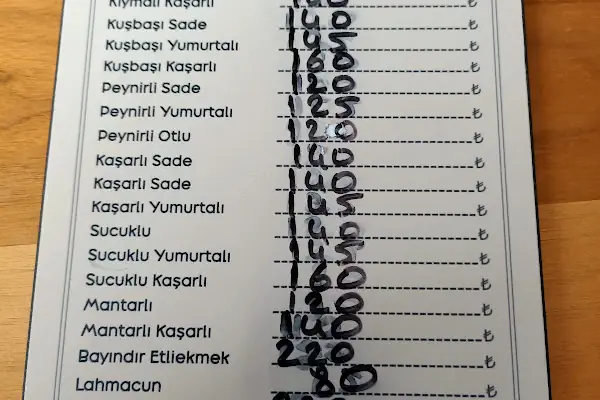 Kıymalı Kaşarlı ₺
Kuşbaşı Sade 140 ₺
Kuşbaşı Yumurtalı 145 ₺
Kuşbaşı Kaşarlı 160 ₺
Peynirli Sade 120 ₺
Peynirli Yumurtalı 125 ₺
Peynirli Otlu 120 ₺
Kaşarlı Sade 140 ₺
Kaşarlı Sade 140 ₺
Kaşarlı Yumurtalı 145 ₺
Sucuklu 140 ₺
Sucuklu Yumurtalı 145 ₺
Sucuklu Kaşarlı 160 ₺
Mantarlı 120 ₺
Mantarlı Kaşarlı 140 ₺
Bayındır Etliekmek 220 ₺
Lahmacun 80 ₺